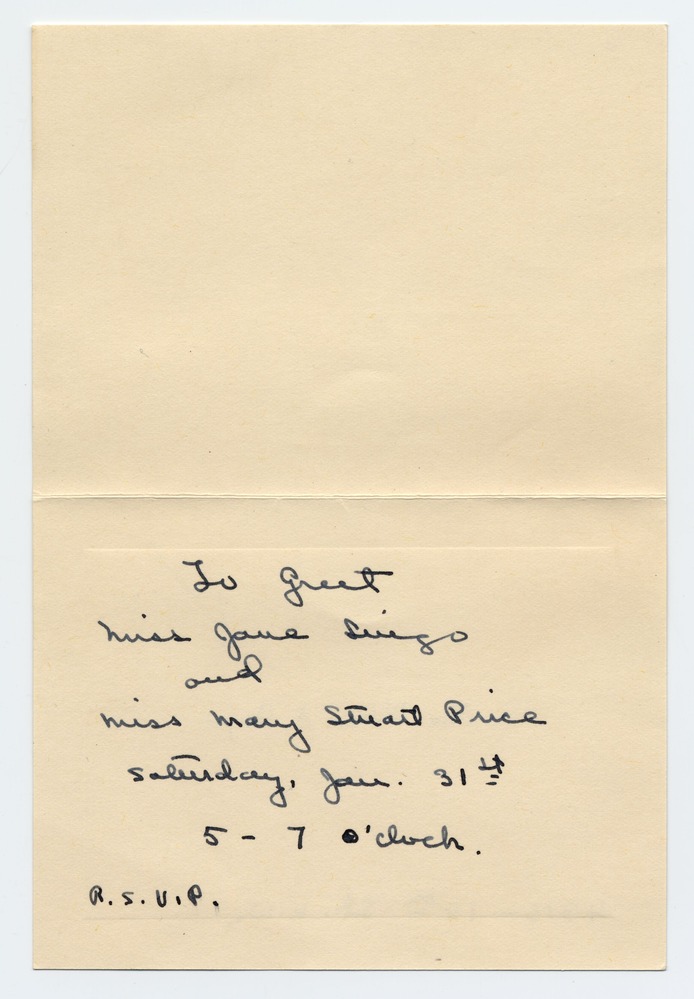 To Greet
Miss Jane
and
Miss Mary Stuart Price
Saturday, Jan. 31st
5 - 7 o'clock.
R.S.V.P.